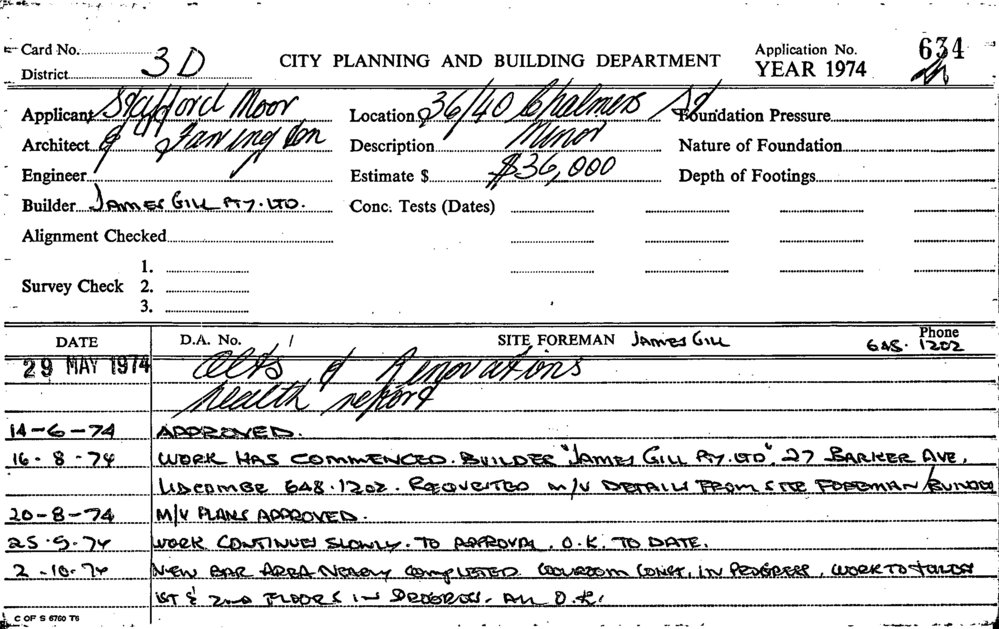 Card No.
District 3D
CITY PLANNING AND BUILDING DEPARTMENT
Application No. 634
YEAR 1974
Applicant Stafford Moor
Location 36/40 Chalmers St
Foundation Pressure
Architect & Farrington
Description Minor
Nature of Foundation
Engineer
Estimate $ $36,000
Depth of Footings
Builder JAMES GILL PTY. LTD.
Conc. Tests (Dates)
Alignment Checked
Survey Check
1.
2.
3.
DATE
D.A. No. /
SITE FOREMAN JAMES GILL
Phone
648. 1202
29 MAY 1974 Alts & Renovations
health report
14-6-74 APPROVED.
16-8-74 WORK HAS COMMENCED. BUILDER "JAMES GILL PTY. LTD", 27 BARKER AVE,
LIDCOMBE 648.1202. REQUESTED M/V DETAILS FROM SITE FOREMAN/BUILDER
20-8-74 M/V PLANS APPROVED.
25.9.74 WORK CONTINUES SLOWLY. TO APPROVAL. O.K. TO DATE.
2-10-74 NEW BAR AREA NEARLY COMPLETED. COOLROOM CONST. IN PROGRESS, WORK TO
1ST & 2ND FLOORS IN PROGRESS. ALL O.K.
C OF S 6760 T6